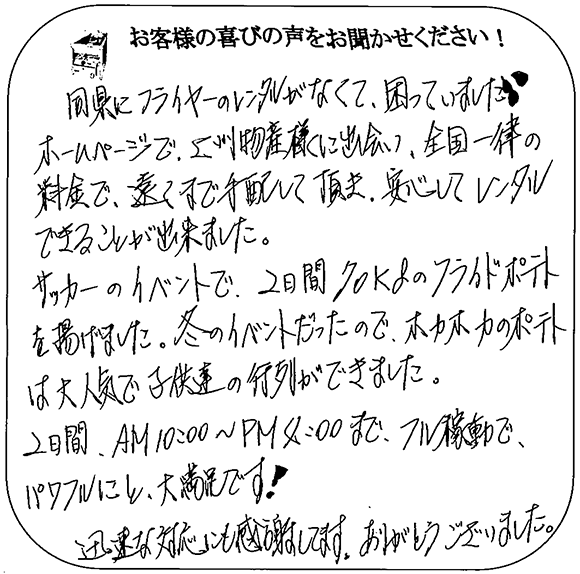 お客様の喜びの声をお聞かせください！
同県にフライヤーのレンタルがなくて、困っていました
ホームページで、エヅリ物産様に出会い、全国一律の
料金で、遠くまで手配して頂き、安心してレンタル
できることが出来ました。
サッカーのイベントで、2日間70Kgのフライドポテト
を揚げました。冬のイベントだったので、ホカホカのポテト
は大人気で子供達の行列ができました。
2日間、AM10:00～PM4:00まで、フル稼動で、
パワフルにと、大満足です!
迅速な対応にも感謝してます。ありがとうございました。